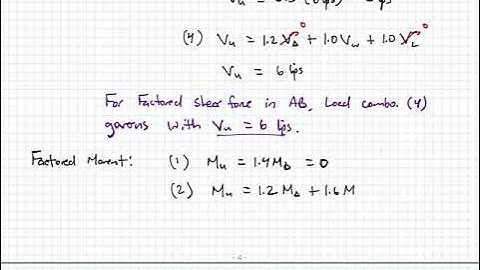 (4) Vu = 1.2VD⁰ + 1.0Vw + 1.0VL⁰
Vu = 6 kips
For Factored shear force in AB, Load combo. (4)
governs with Vu = 6 kips.
Factored Moment: (1) Mu = 1.4MD = 0
(2) Mu = 1.2MD + 1.6M
- 4 -